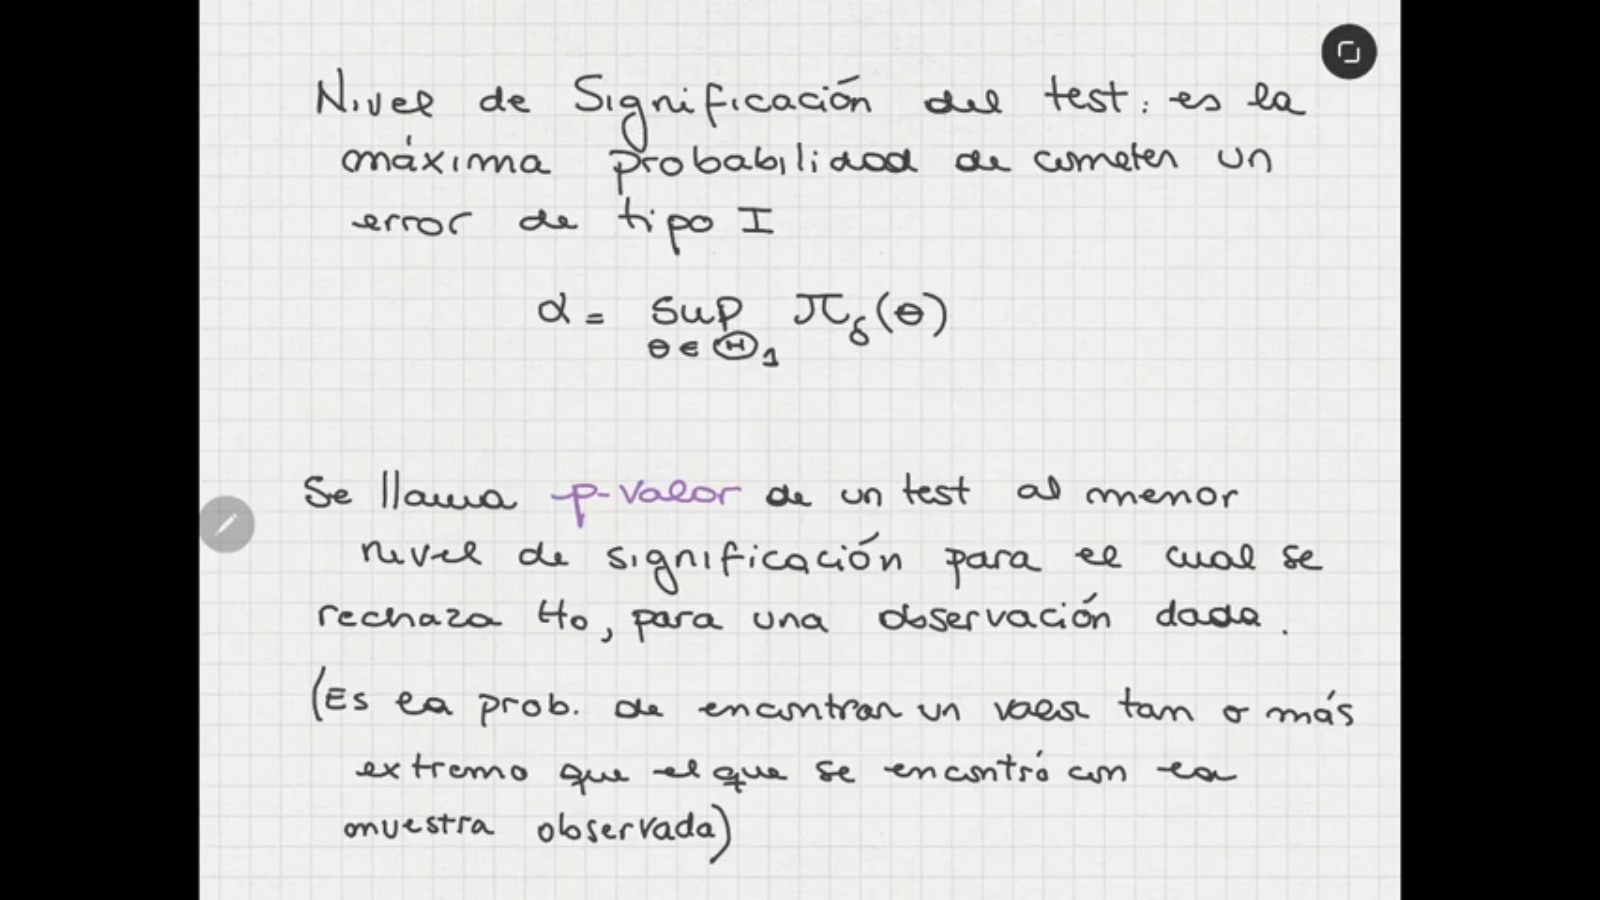 Nivel de Significación del test: es la
máxima probabilidad de cometer un
error de tipo I
α = sup π_δ(θ)
θ ∈ Θ_1
Se llama p-valor de un test al menor
nivel de significación para el cual se
rechaza H_0, para una observación dada.
(Es la prob. de encontrar un valor tan o más
extremo que el que se encontró con la
muestra observada)